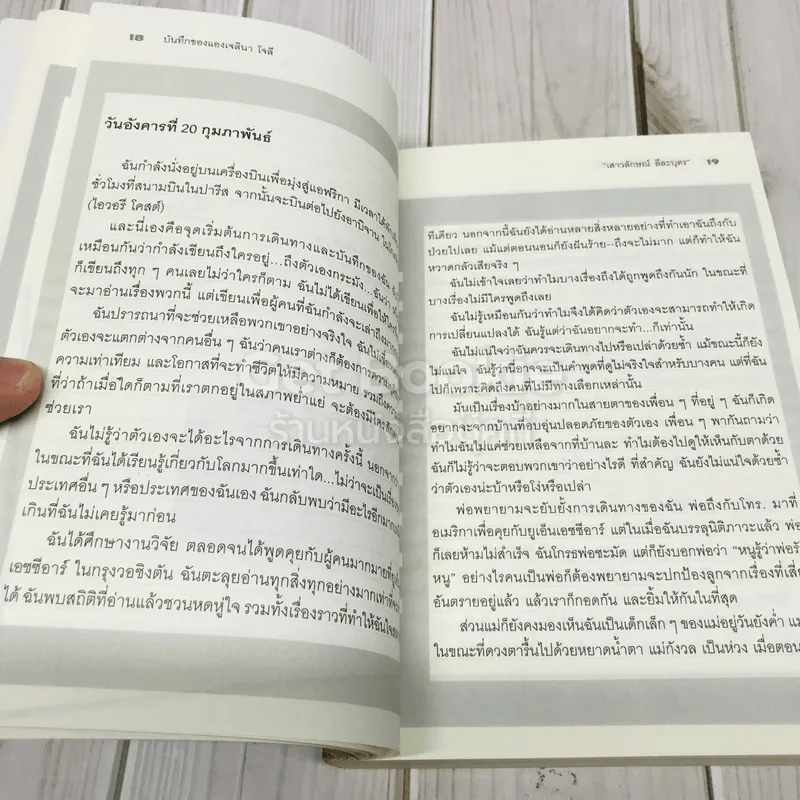 18 บันทึกของแองเจลินา โจลี
วันอังคารที่ 20 กุมภาพันธ์
ฉันกำลังนั่งอยู่บนเครื่องบินเพื่อมุ่งสู่แอฟริกา มีเวลาได้
ชั่วโมงที่สนามบินในปารีส จากนั้นจะบินต่อไปยังอาบิจาน
(ไอวอรี โคสต์)
และนี่เองคือจุดเริ่มต้นการเดินทางและบันทึกของฉัน
เหมือนกันว่ากำลังเขียนถึงใครอยู่...ถึงตัวเองกระมัง...ฉันว่า
ก็เขียนถึงทุก ๆ คนเลยไม่ว่าใครก็ตาม ฉันไม่ได้เขียนเพื่อให้
จะมาอ่านเรื่องพวกนี้ แต่เขียนเพื่อผู้คนที่ฉันกำลังจะเล่าถึง
ฉันปรารถนาที่จะช่วยเหลือพวกเขาอย่างจริงใจ ฉันไม่เชื่อ
ตัวเองจะแตกต่างจากคนอื่น ๆ ฉันว่าคนเราต่างก็ต้องการความ
ความเท่าเทียม และโอกาสที่จะทำชีวิตให้มีความหมาย รวมถึง
ที่ว่าถ้าเมื่อใดก็ตามที่เราตกอยู่ในสภาพย่ำแย่ จะต้องมีใคร
ช่วยเรา
ฉันไม่รู้ว่าตัวเองจะได้อะไรจากการเดินทางครั้งนี้ นอกจาก
ในขณะที่ฉันได้เรียนรู้เกี่ยวกับโลกมากขึ้นเท่าใด...ไม่ว่าจะเป็นเรื่อง
ประเทศอื่น ๆ หรือประเทศของฉันเอง ฉันกลับพบว่ามีอะไรอีกมาก
เกินที่ฉันไม่เคยรู้มาก่อน
ฉันได้ศึกษางานวิจัย ตลอดจนได้พูดคุยกับผู้คนมากมายที่
เอชซีอาร์ ในกรุงวอชิงตัน ฉันตะลุยอ่านทุกสิ่งทุกอย่างเท่าที่จะ
ได้ ฉันพบสถิติที่อ่านแล้วชวนหดหู่ใจ รวมทั้งเรื่องราวที่ทำให้ฉันใจ
"เสาวลักษณ์ ลีละบุตร" 19
ทีเดียว นอกจากนี้ฉันยังได้อ่านหลายสิ่งหลายอย่างที่ทำเอาฉันถึงกับ
ป่วยไปเลย แม้แต่ตอนนอนก็ยังฝันร้าย--ถึงจะไม่มาก แต่ก็ทำให้ฉัน
หวาดกลัวเสียจริง ๆ
ฉันไม่เข้าใจเลยว่าทำไมบางเรื่องถึงได้ถูกพูดถึงกันนัก ในขณะที่
บางเรื่องไม่มีใครพูดถึงเลย
ฉันไม่รู้เหมือนกันว่าทำไมจึงได้คิดว่าตัวเองจะสามารถทำให้เกิด
การเปลี่ยนแปลงได้ ฉันรู้แต่ว่าฉันอยากจะทำ...ก็เท่านั้น
ฉันไม่แน่ใจว่าฉันควรจะเดินทางไปหรือเปล่าด้วยซ้ำ แม้ขณะนี้ก็ยัง
ไม่แน่ใจ ฉันรู้ว่านี่อาจจะเป็นคำพูดที่ดูไม่จริงใจสำหรับบางคน แต่ที่ฉัน
ไปก็เพราะคิดถึงคนที่ไม่มีทางเลือกเหล่านั้น
มันเป็นเรื่องบ้าอย่างมากในสายตาของเพื่อน ๆ ที่อยู่ ๆ ฉันก็เกิด
อยากจะจากบ้านที่อบอุ่นปลอดภัยของตัวเอง เพื่อน ๆ พากันถามว่า
ทำไมฉันไม่แค่ช่วยเหลือจากที่บ้านละ ทำไมต้องไปดูให้เห็นกับตาด้วย
ฉันก็ไม่รู้ว่าจะตอบพวกเขาว่าอย่างไรดี ที่สำคัญ ฉันยังไม่แน่ใจด้วยซ้ำ
ว่าตัวเองน่ะบ้าหรือโง่หรือเปล่า
พ่อพยายามจะยับยั้งการเดินทางของฉัน พ่อถึงกับโทร. มาที่
อเมริกาเพื่อคุยกับยูเอ็นเอชซีอาร์ แต่ในเมื่อฉันบรรลุนิติภาวะแล้ว พ่อ
ก็เลยห้ามไม่สำเร็จ ฉันโกรธพ่อซะมัด แต่ก็ยังบอกพ่อว่า "หนูรู้ว่าพ่อรัก
หนู" อย่างไรคนเป็นพ่อก็ต้องพยายามจะปกป้องลูกจากเรื่องที่เสี่ยง
อันตรายอยู่แล้ว แล้วเราก็กอดกัน และยิ้มให้กันในที่สุด
ส่วนแม่ก็ยังคงมองเห็นฉันเป็นเด็กเล็ก ๆ ของแม่อยู่วันยังค่ำ แม่
ในขณะที่ดวงตารื้นไปด้วยหยาดน้ำตา แม่กังวล เป็นห่วง เมื่อตอน